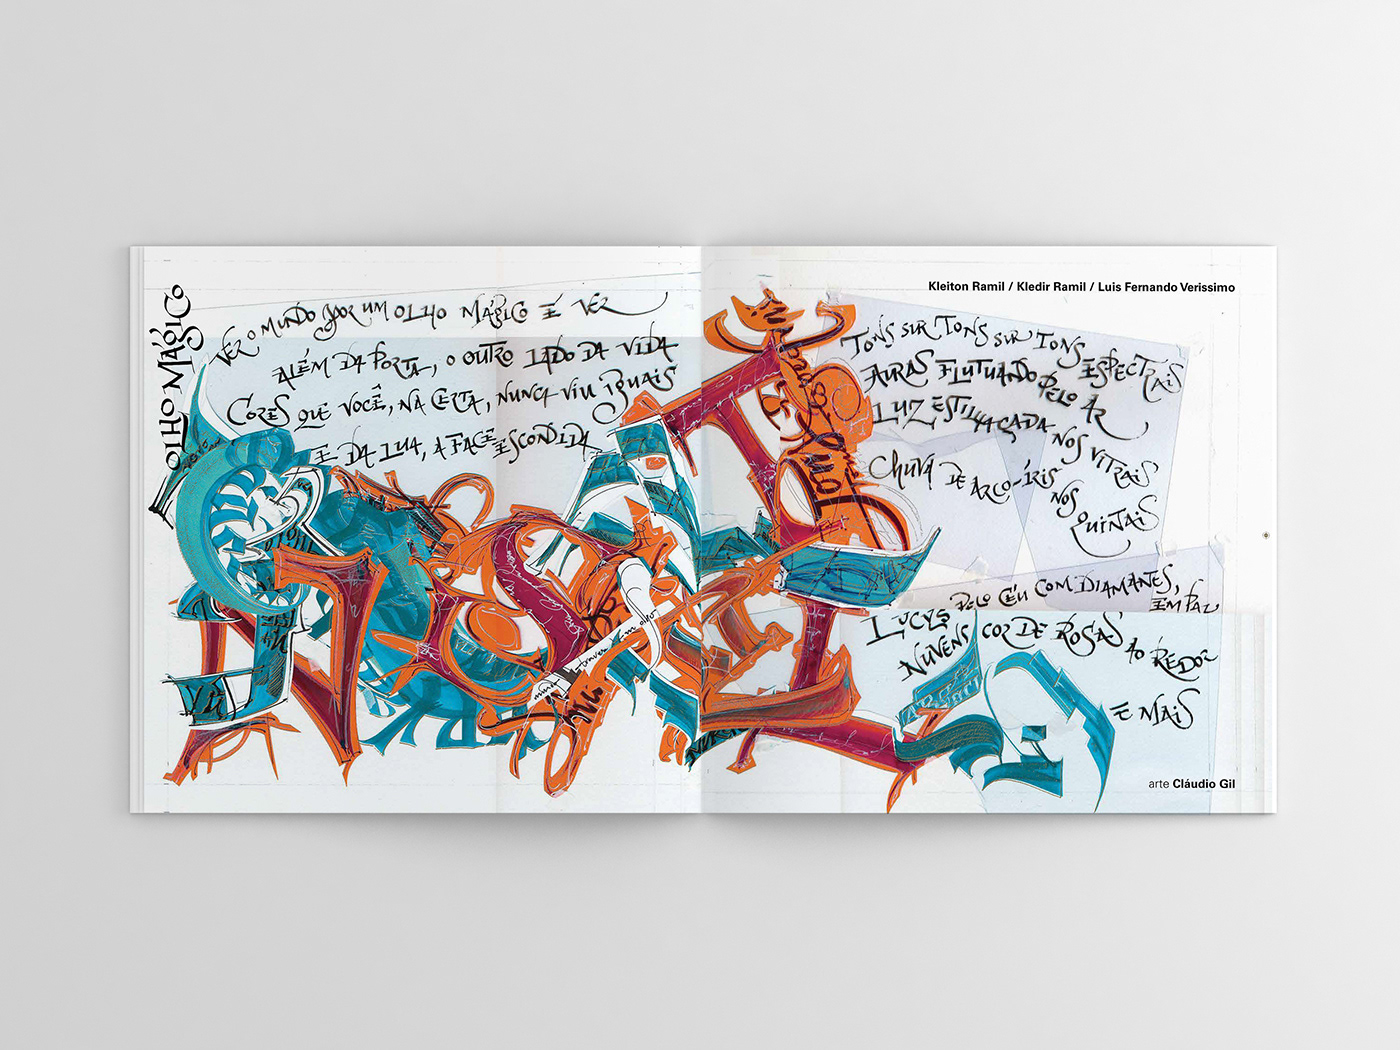 OLHO MÁGICO
VER O MUNDO POR UM OLHO MÁGICO É VER
ALÉM DA PORTA, O OUTRO LADO DA VIDA
CORES QUE VOCÊ, NA CERTA, NUNCA VIU IGUAIS
E DA LUA, A FACE ESCONDIDA
Kleiton Ramil / Kledir Ramil / Luis Fernando Verissimo
TONS SUR TONS SUR TONS ESPECTRAIS
AURAS FLUTUANDO PELO AR
LUZ ESTILHAÇADA NOS VITRAIS
CHUVA DE ARCO-ÍRIS NOS QUINTAIS
PELO CÉU COM DIAMANTES,
EM PAZ
LUCYS
NUVENS COR DE ROSAS AO REDOR
E MAIS
arte Cláudio Gil